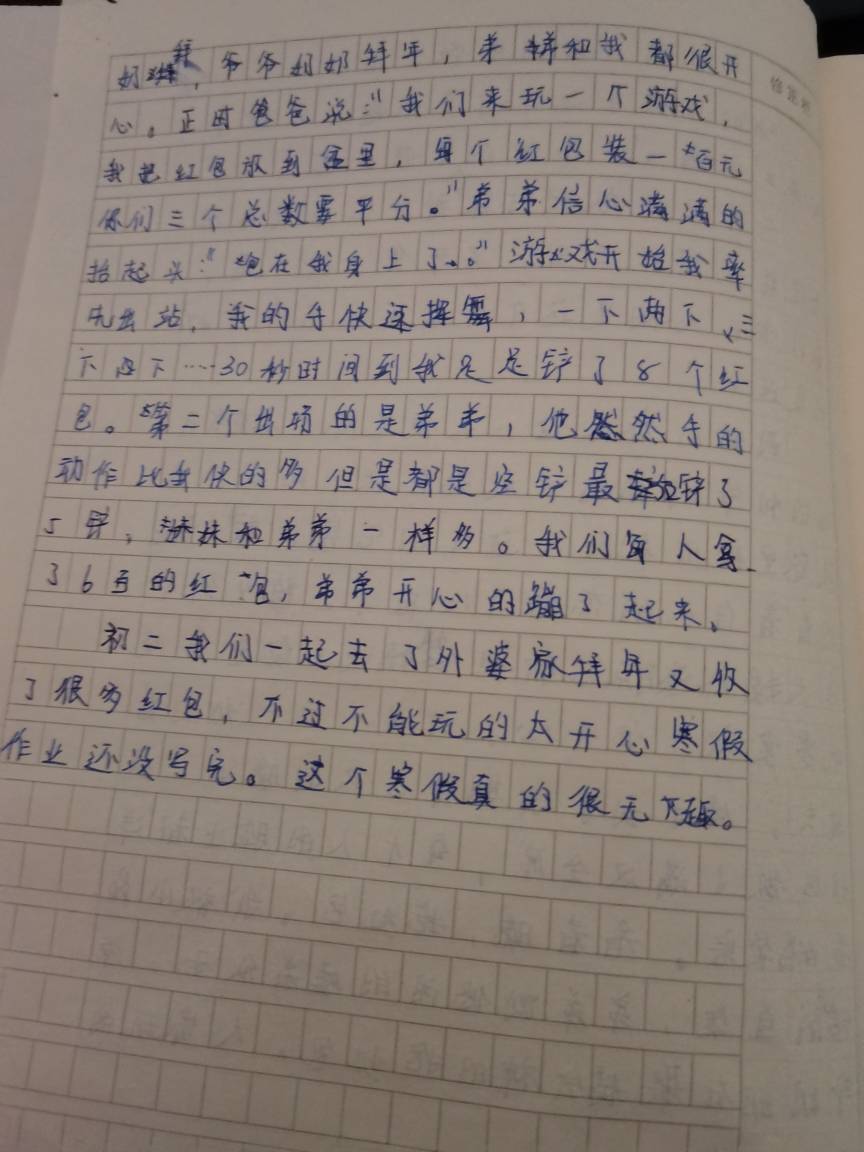 奶拜，爷爷奶奶拜年，弟妹和我都很开
心。正时爸爸说:"我们来玩一个游戏，
我把红包放到盒里，每个红包装一百元
你们三个总数要平分。"弟弟信心满满的
抬起头:"包在我身上了。"游戏开始我率
先出站，我的手快速挥舞，一下两下、三
下四下……30秒时间到我足足铲了8个红
包。第二个出场的是弟弟，他然手的
动作比我快的多但是都是空铲最铲了
5铲，妹妹和弟弟一样多。我们每人拿
36百的红包，弟弟开心的蹦了起来。
初二我们一起去了外婆家拜年又收
了很多红包，不过不能玩的太开心寒假
作业还没写完。这个寒假真的很无趣。